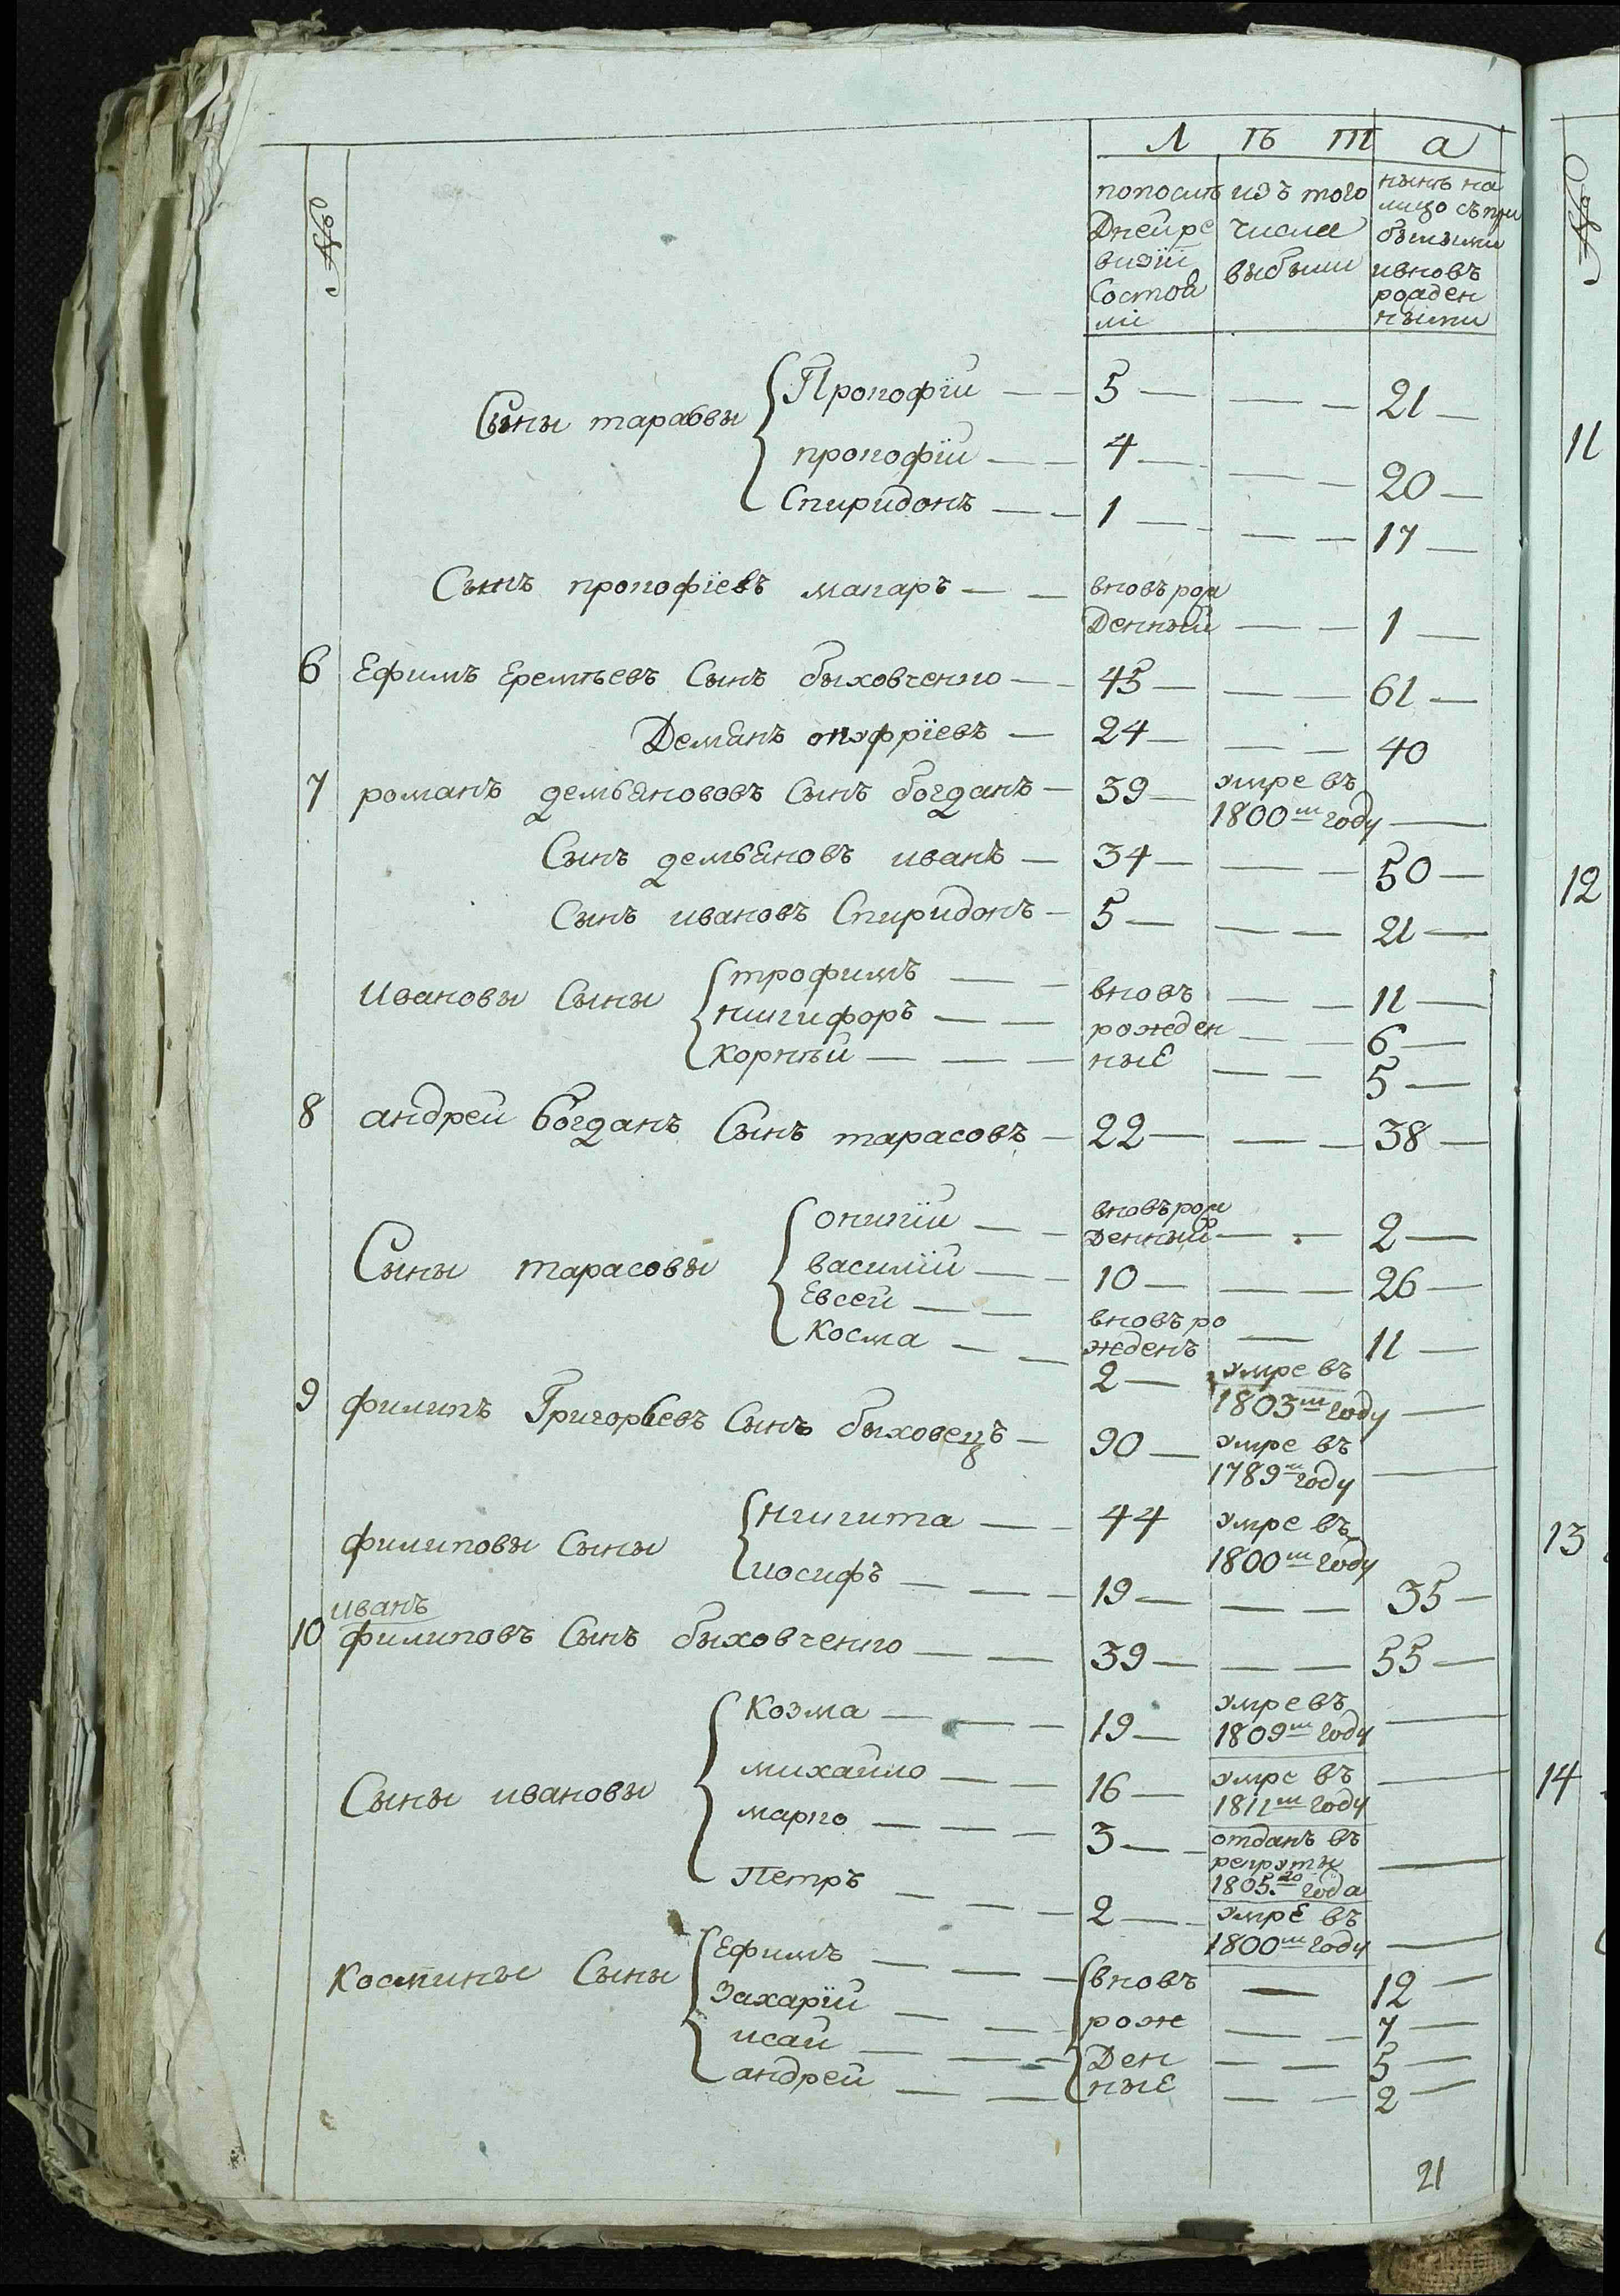 Л ѣ т а
№
попослѣ
Дней ре
визїи
Состоя
ли
изъ того
числа
выбыли
нынѣ на
лицо съ при
былыми
ивновъ
рожден
ными
№
Сыны тарасовы
Прокофїи — — 5 — — — 21 —
прокофїи — — 4 — — — 20 —
Спиридонъ — — 1 — — — 17 —
Сынъ прокофїевъ макаръ — — вновъ рож
Денный — — 1 —
6 Ефимъ Еремѣевъ Сынъ быховченко — 45 — — — 61 —
Демянъ онуфрїевъ — 24 — — — 40
7 романъ демьяновъ Сынъ богданъ — 39 — умре въ
1800м году —
Сынъ демьяновъ иванъ — 34 — — — 50 —
Сынъ ивановъ Спиридонъ — 5 — — — 21 —
Ивановы Сыны
трофимъ — — вновъ — — 11 —
никифоръ — — рожден — — 6 —
корнѣй — — — ные — — 5 —
8 андреи богданъ Сынъ тарасовъ — 22 — — — 38 —
Сыны тарасовы
— — вновъ рож
Денный — — 2 —
василїи — — 10 — — — 26 —
Евсеи — — вновъ ро
жденъ — 11 —
Косма — — 2 — умре въ
1803м году —
9 филипъ Григорьевъ Сынъ быховецъ — 90 — умре въ
1789м году —
филиповы Сыны
никита — — 44 умре въ
1800м году
иосифъ — — — 19 — — — 35 —
иванъ
10 филиповъ Сынъ быховченко — — 39 — — — 55 —
Сыны ивановы
Козма — — — 19 — умре въ
1809м году —
михаило — — 16 — умре въ
1811м году —
марко — — — 3 — отданъ въ
рекруты
1805го года —
Петръ — — — 2 — умре въ
1800м году —
Космины Сыны
Ефимъ — — — вновъ — 12 —
Захарїи — — рож — — 7 —
исаи — — — Ден — — 5 —
андреи — — ные — — 2 —
21
11
12
13
14